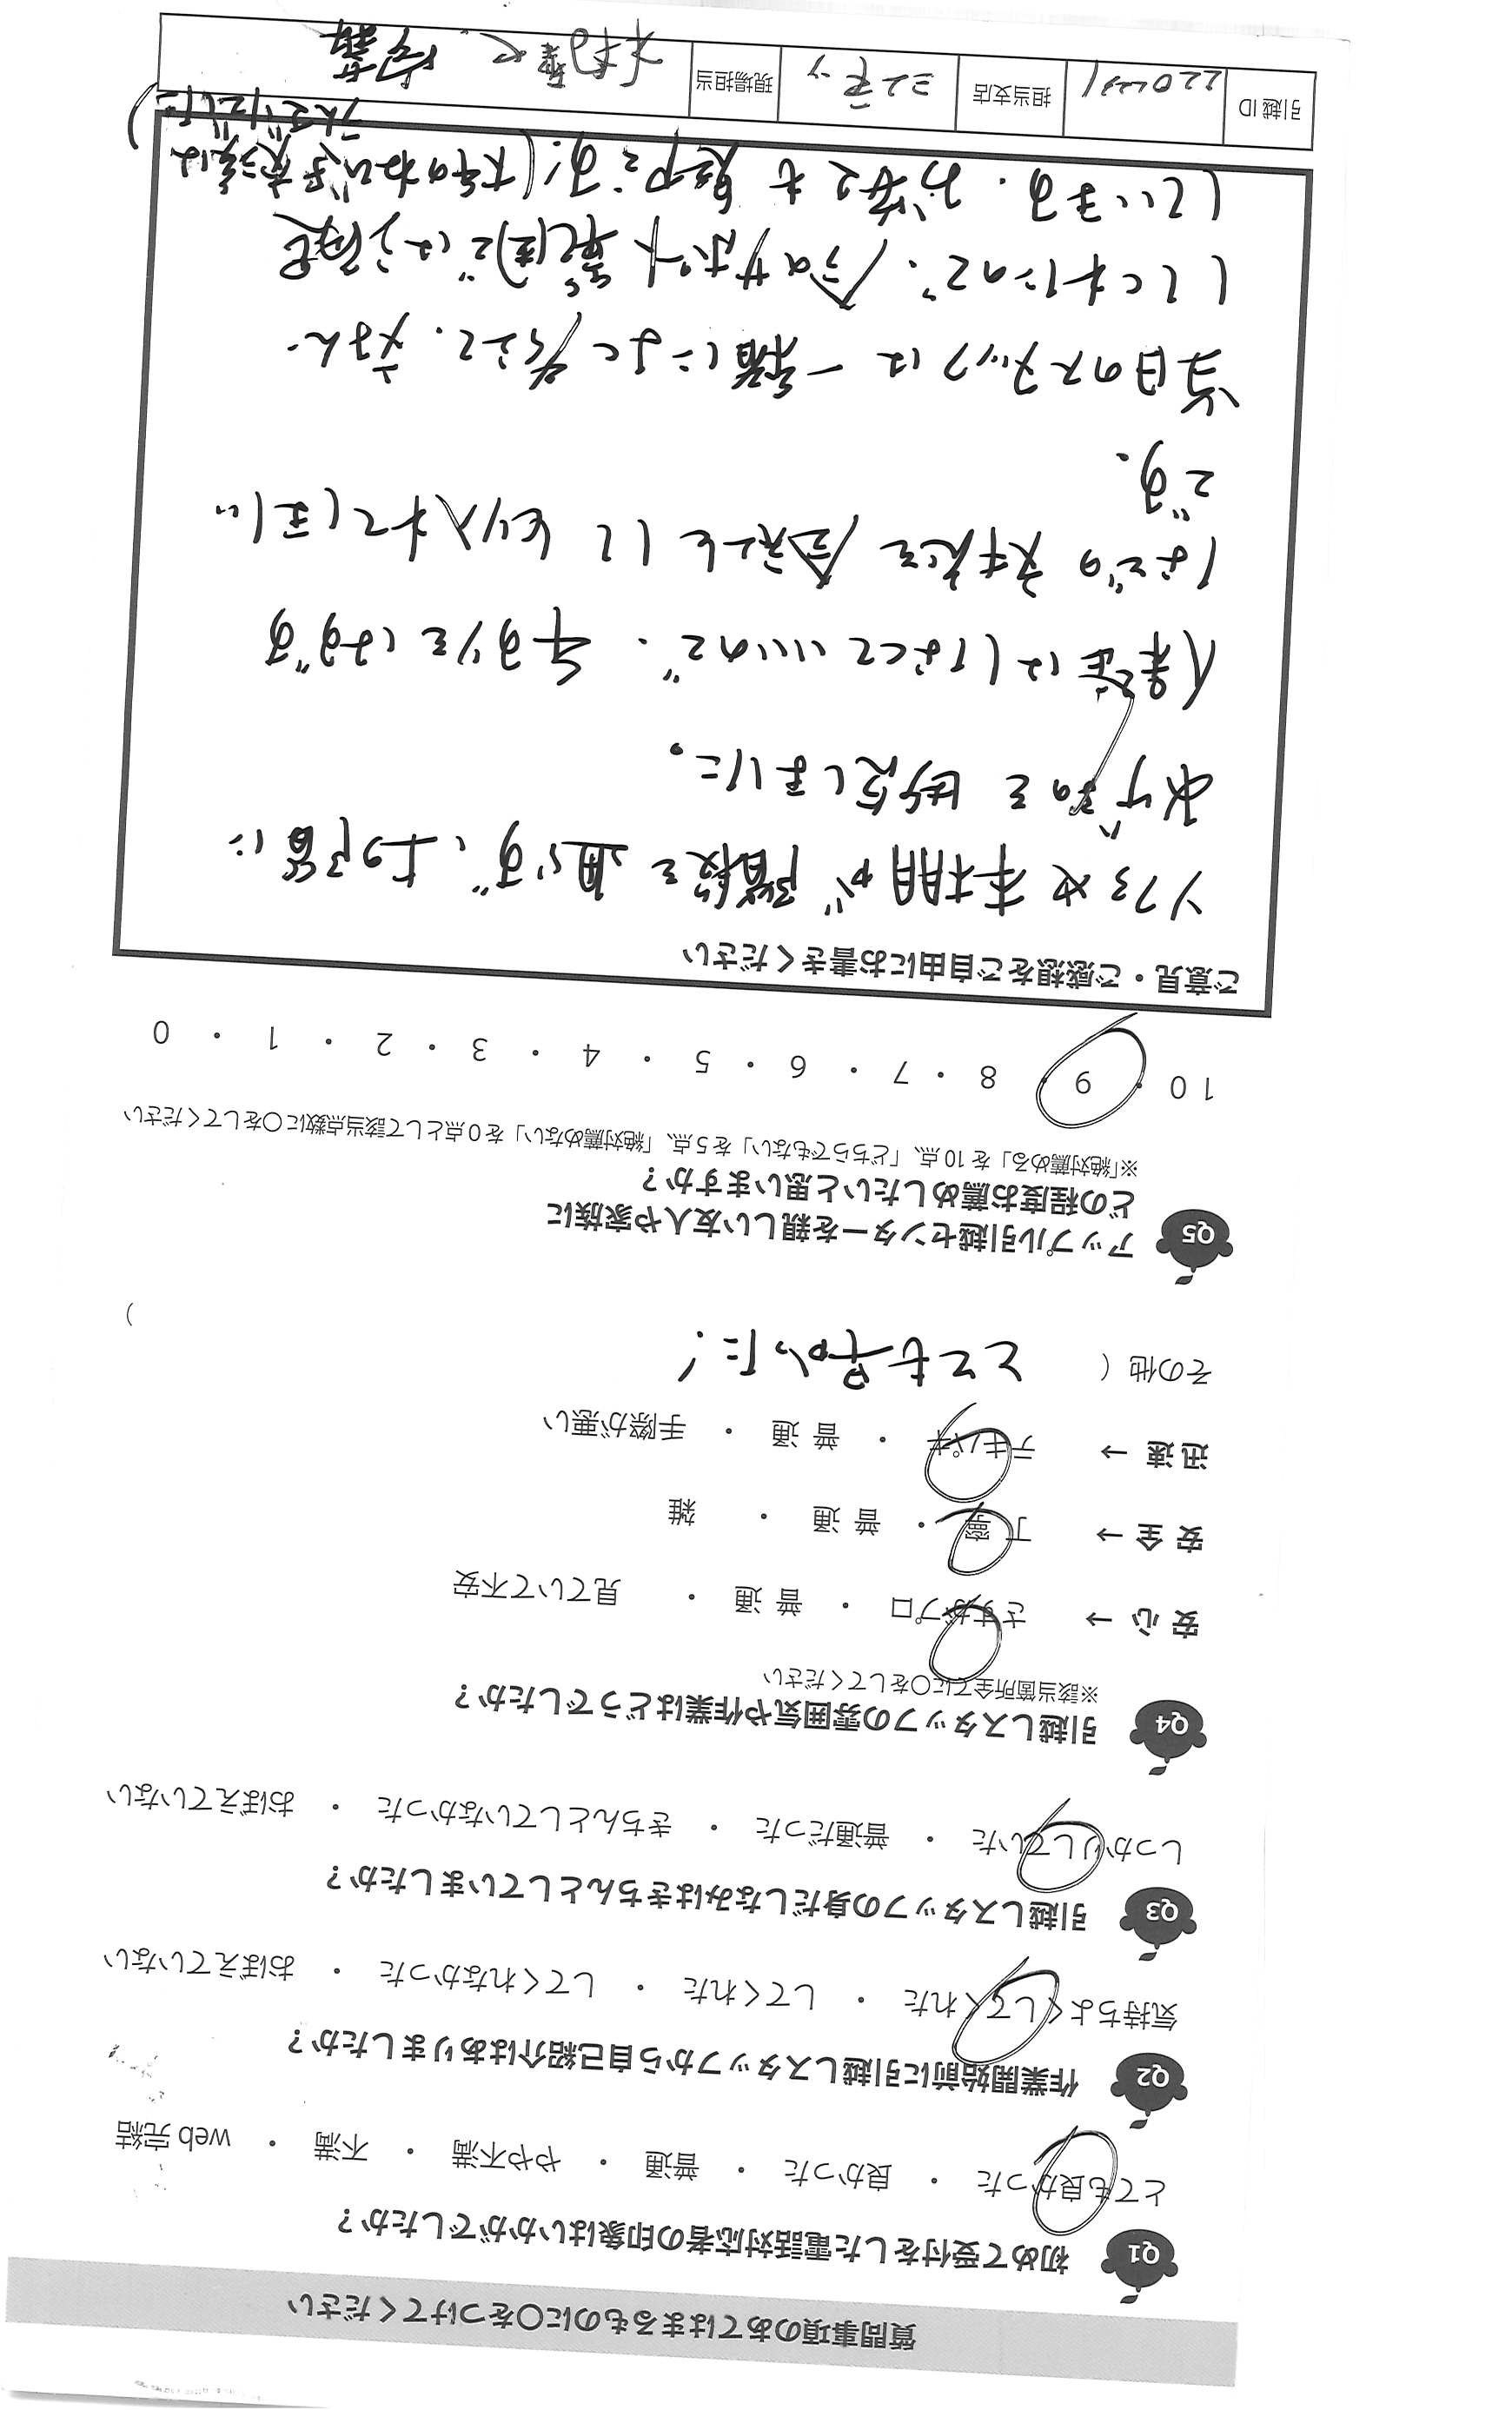 質問事項のあてはまるものに○をつけてください
Q1 初めて受付をした電話対応者の印象はいかがでしたか？
とても良かった ・ 良かった ・ 普通 ・ やや不満 ・ 不満 ・ web 完結
Q2 作業開始前に引越しスタッフから自己紹介はありましたか？
気持ちよくしてくれた ・ してくれた ・ してくれなかった ・ おぼえていない
Q3 引越しスタッフの身だしなみはきちんとしていましたか？
しっかりしていた ・ 普通だった ・ きちんとしていなかった ・ おぼえていない
Q4 引越しスタッフの雰囲気や作業はどうでしたか？
※該当箇所全てに○をしてください
安心 → さすがプロ ・ 普通 ・ 見ていて不安
安全 → 丁寧 ・ 普通 ・ 雑
迅速 → テキパキ ・ 普通 ・ 手際が悪い
その他（ とても早かった！ ）
Q5 アップル引越センターを親しい友人や家族に
どの程度お薦めしたいと思いますか？
※「絶対薦める」を 10 点、「どちらでもない」を 5 点、「絶対薦めない」を 0 点として該当点数に○をしてください
10 ・ 9 ・ 8 ・ 7 ・ 6 ・ 5 ・ 4 ・ 3 ・ 2 ・ 1 ・ 0
ご意見・ご感想をご自由にお書きください
ソファや本棚が階段を通らず、上の階に
あげるのを断念しました。
保証はしなくていいので、手すりをはずす
などの対応を会社としてとり入れてほしい
です。
当日のスタッフは一緒によく考えて、
してくれたので、会社のサポート
しています。お安さも魅力です！
引越 ID
担当支店
現場担当